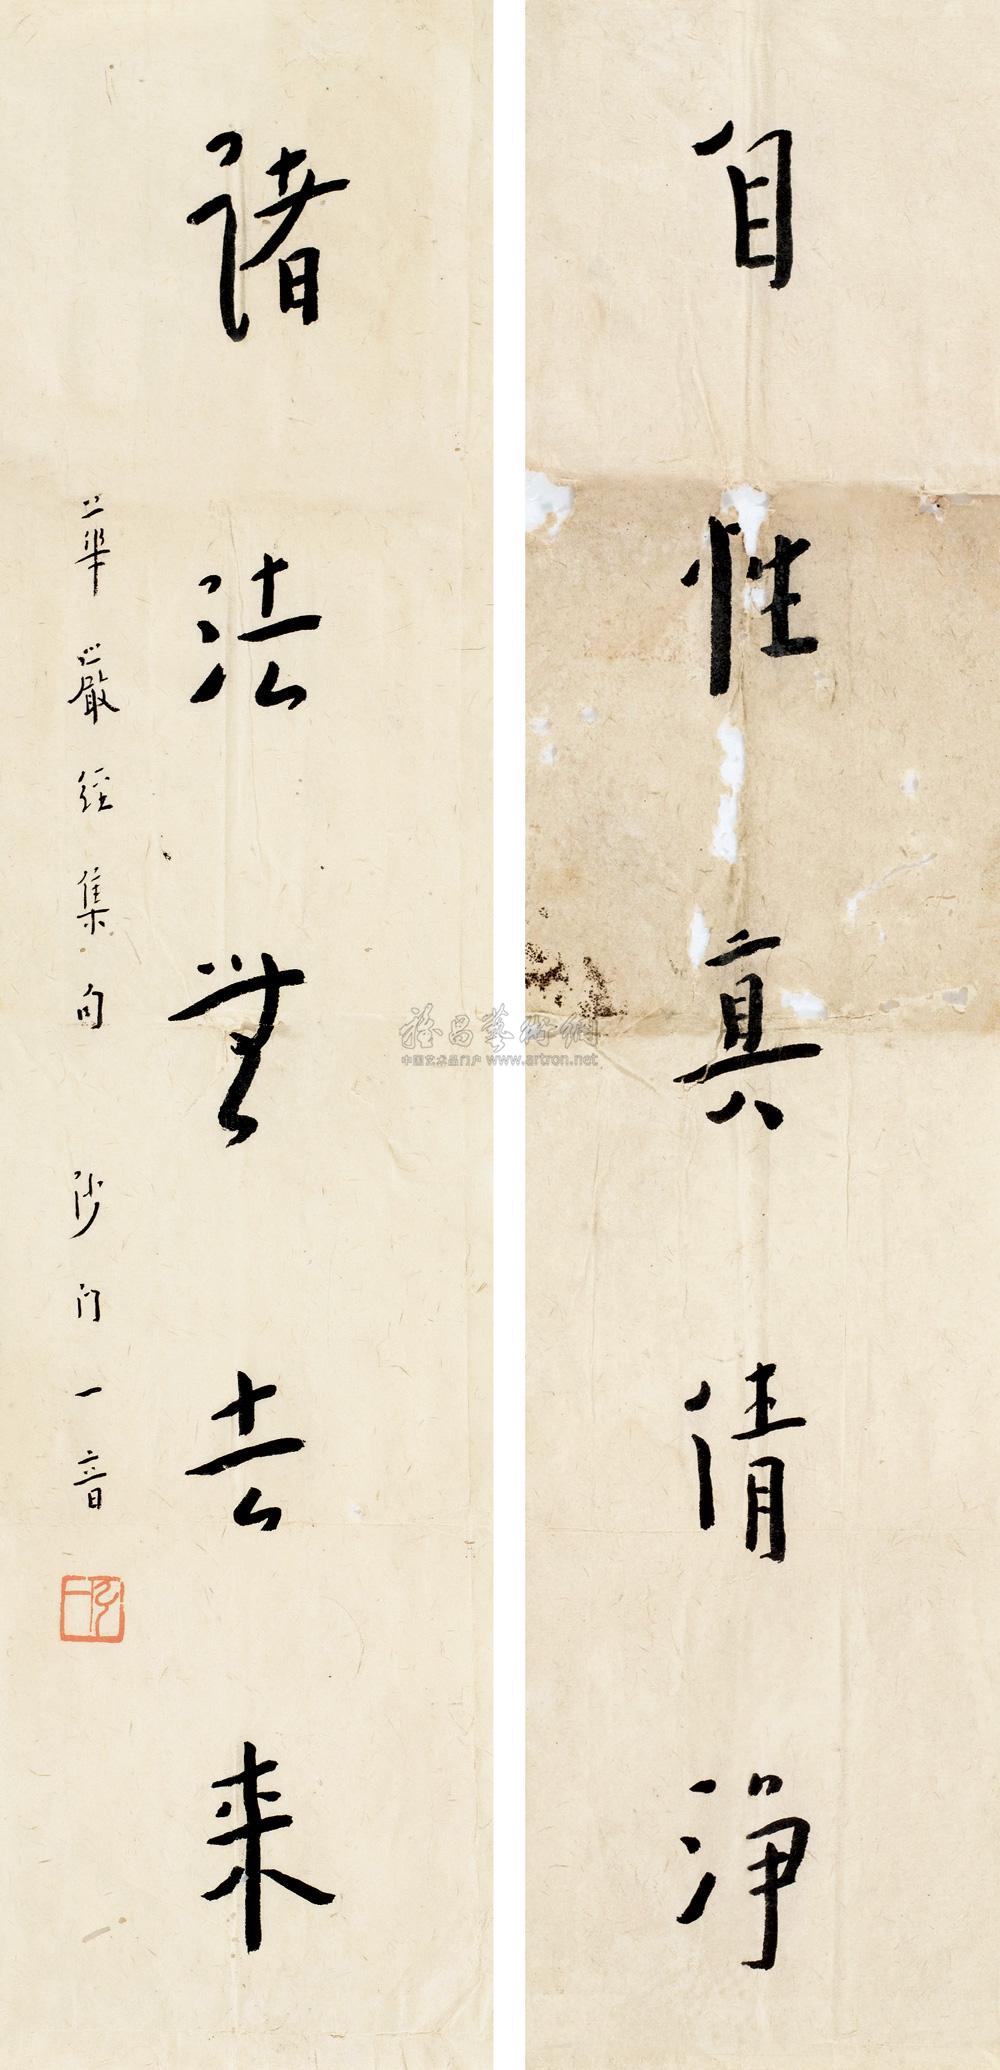 自性真清淨
諸法無去來
華嚴經集句 沙门一音
雅昌藝術網
中国艺术品门户 www.artron.net